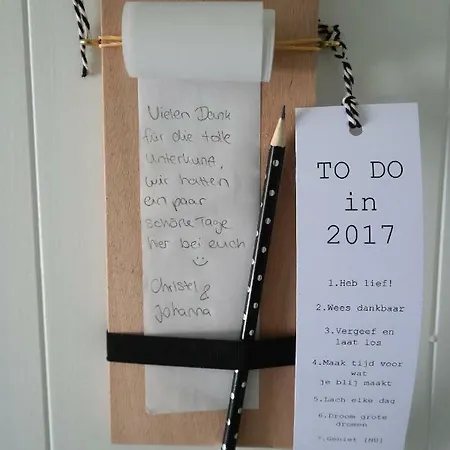 Vielen Dank
für die tolle
Unterkunft,
wir hatten
ein paar
schöne Tage
hier bei euch
Christel
&
Johanna
TO DO
in
2017
1.Heb lief!
2.Wees dankbaar
3.Vergeef en
laat los
4.Maak tijd voor
wat
je blij maakt
5.Lach elke dag
6.Droom grote
dromen
7.Geniet [NU]